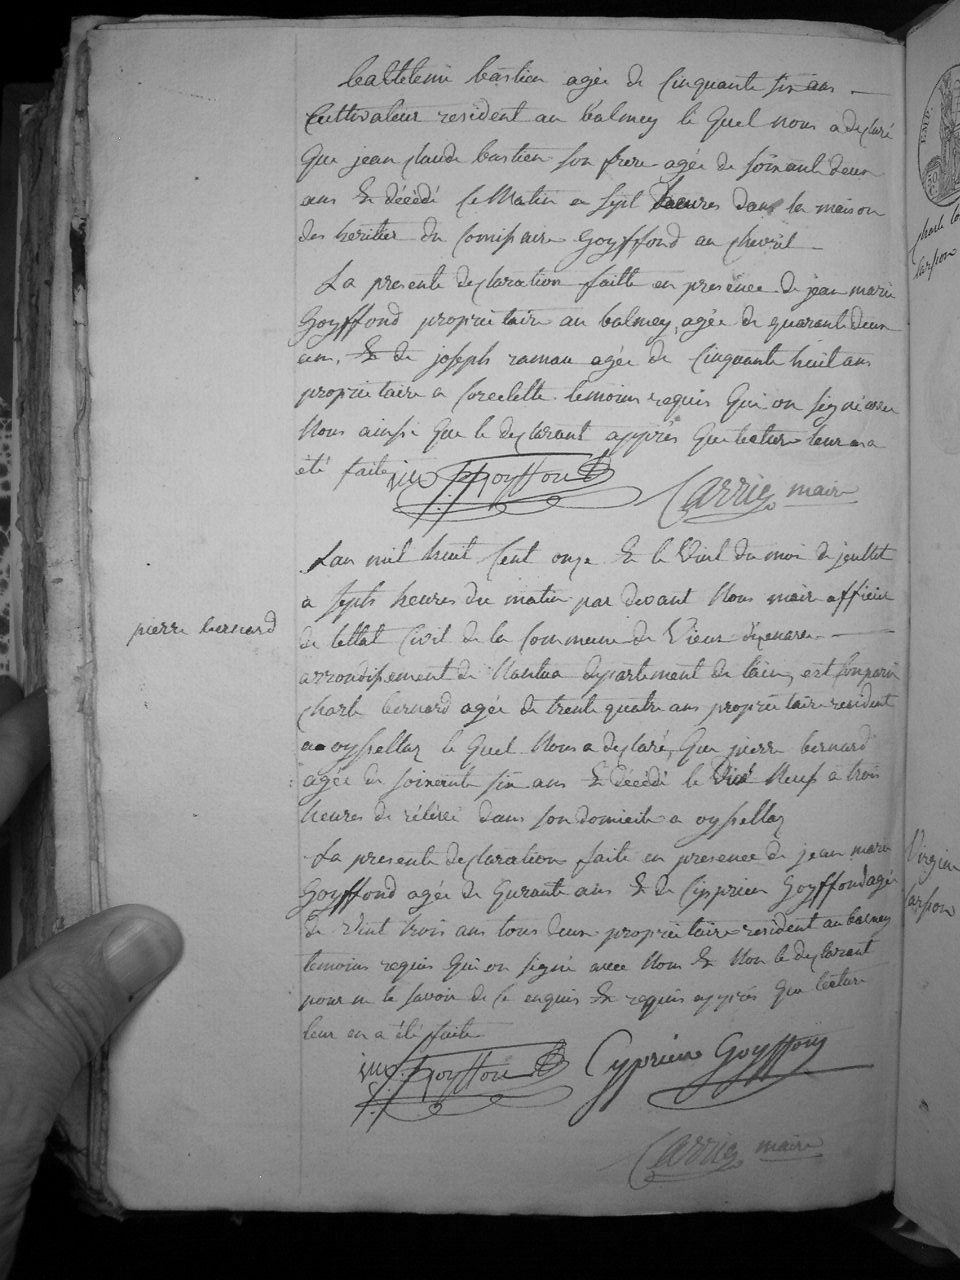 battelemi bastien agée de Cinquante six ans
Cultivateur resident au balmey le Quel nous a declaré
Que jean claude bastien son frere agée de soixante deux
ans Et décédé Ce Matin a sept heures dans la maison
des heritier du Comissaire Goyffond au chevril
La presente declaration faitte en presence de jean marie
Goyffond proprietaire au balmey, agée de quarante deux
ans, Et de joseph raman agée de Cinquante huit ans
proprietaire a Corcelette temoins requis Qui on signé avec
Nous ainsi que le declarant apprés Que lecture leur en a
été faite jm Goyffond
Carrier maire
Lan mil huit Cent onze Et le Vint du moi de jeuillet
a septs heures du matin par devant Nous maire officier
de lettat Civil de la Commune de Vieux disenave
arrondissement de Nantua departement de lain, est Comparu
charle bernard agée de trente quatre ans proprietaire resident
a oyssellaz le Quel Nous a declaré, Que pierre bernard
pierre bernard
agée de soixante six ans Et décédé le dix Neuf a trois
heures de relévé dans son domicile a oyssellaz
La presente declaration faite en presence de jean marie
Goyffond agée de Qurante ans Et de Cipprien Goyffond agée
de Vint trois ans tous deux proprietaire resident au balmey
temoins requis Qui on signé avec Nous Et Non le declarant
pour ne le savoir de Ce enquis Et requis apprés Que lecture
leur en a été faite
jm Goyffond Cyprien Goyffon
Carrier maire
charle
Carpon
Virginie
Carpon